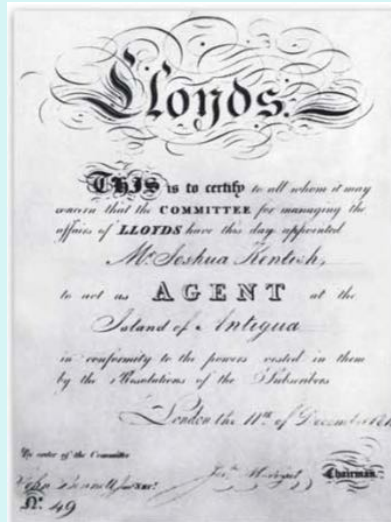 Lloyds.
THIS is to certify to all whom it may
concern that the COMMITTEE for managing the
affairs of LLOYDS have this day appointed
Mr. Joshua Kentish,
to act as AGENT at the
Island of Antigua
in conformity to the powers vested in them
by the Resolutions of the Subscribers
London the 11th of December
By order of the Committee
John Secy.
Chairman.
No. 49